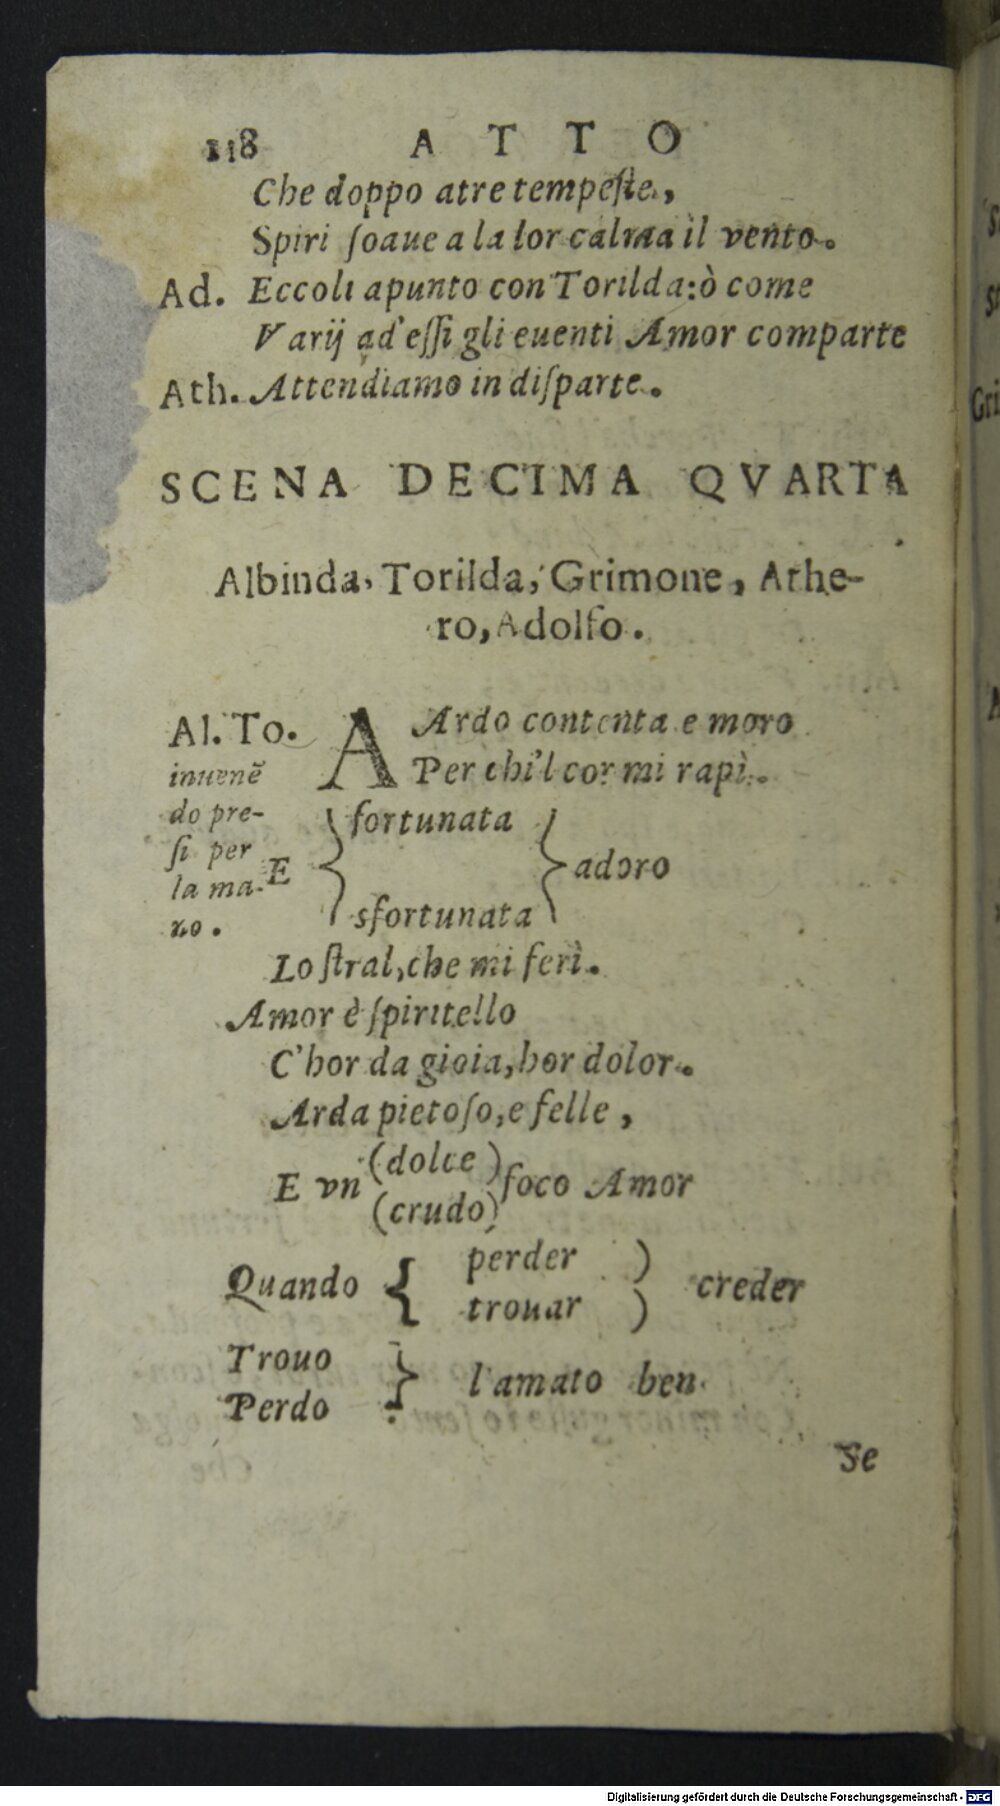 118 ATTO
Che doppo atre tempeſte,
Spiri ſoaue a la lor calma il vento.
Ad. Eccoli apunto con Torilda: ò come
Varij ad'eſſi gli euenti Amor comparte
Ath. Attendiamo in diſparte.
SCENA DECIMA QVARTA
Albinda, Torilda, Grimone, Athe-
ro, Adolfo.
Al. To. AArdo contenta e moro
Per chi'l cor mi rapì.
inuenẽ
do pre-
ſi per
la ma-
no.
E { fortunata } adoro
sfortunata
Lo ſtral, che mi ferì.
Amor è ſpiritello
C'hor da gioia, hor dolor.
Arda pietoſo, e felle,
E vn (dolce) foco Amor
(crudo)
Quando { perder ) creder
trouar )
Trouo } l'amato ben
Perdo
Se
Digitalisierung gefördert durch die Deutsche Forschungsgemeinschaft - DFG